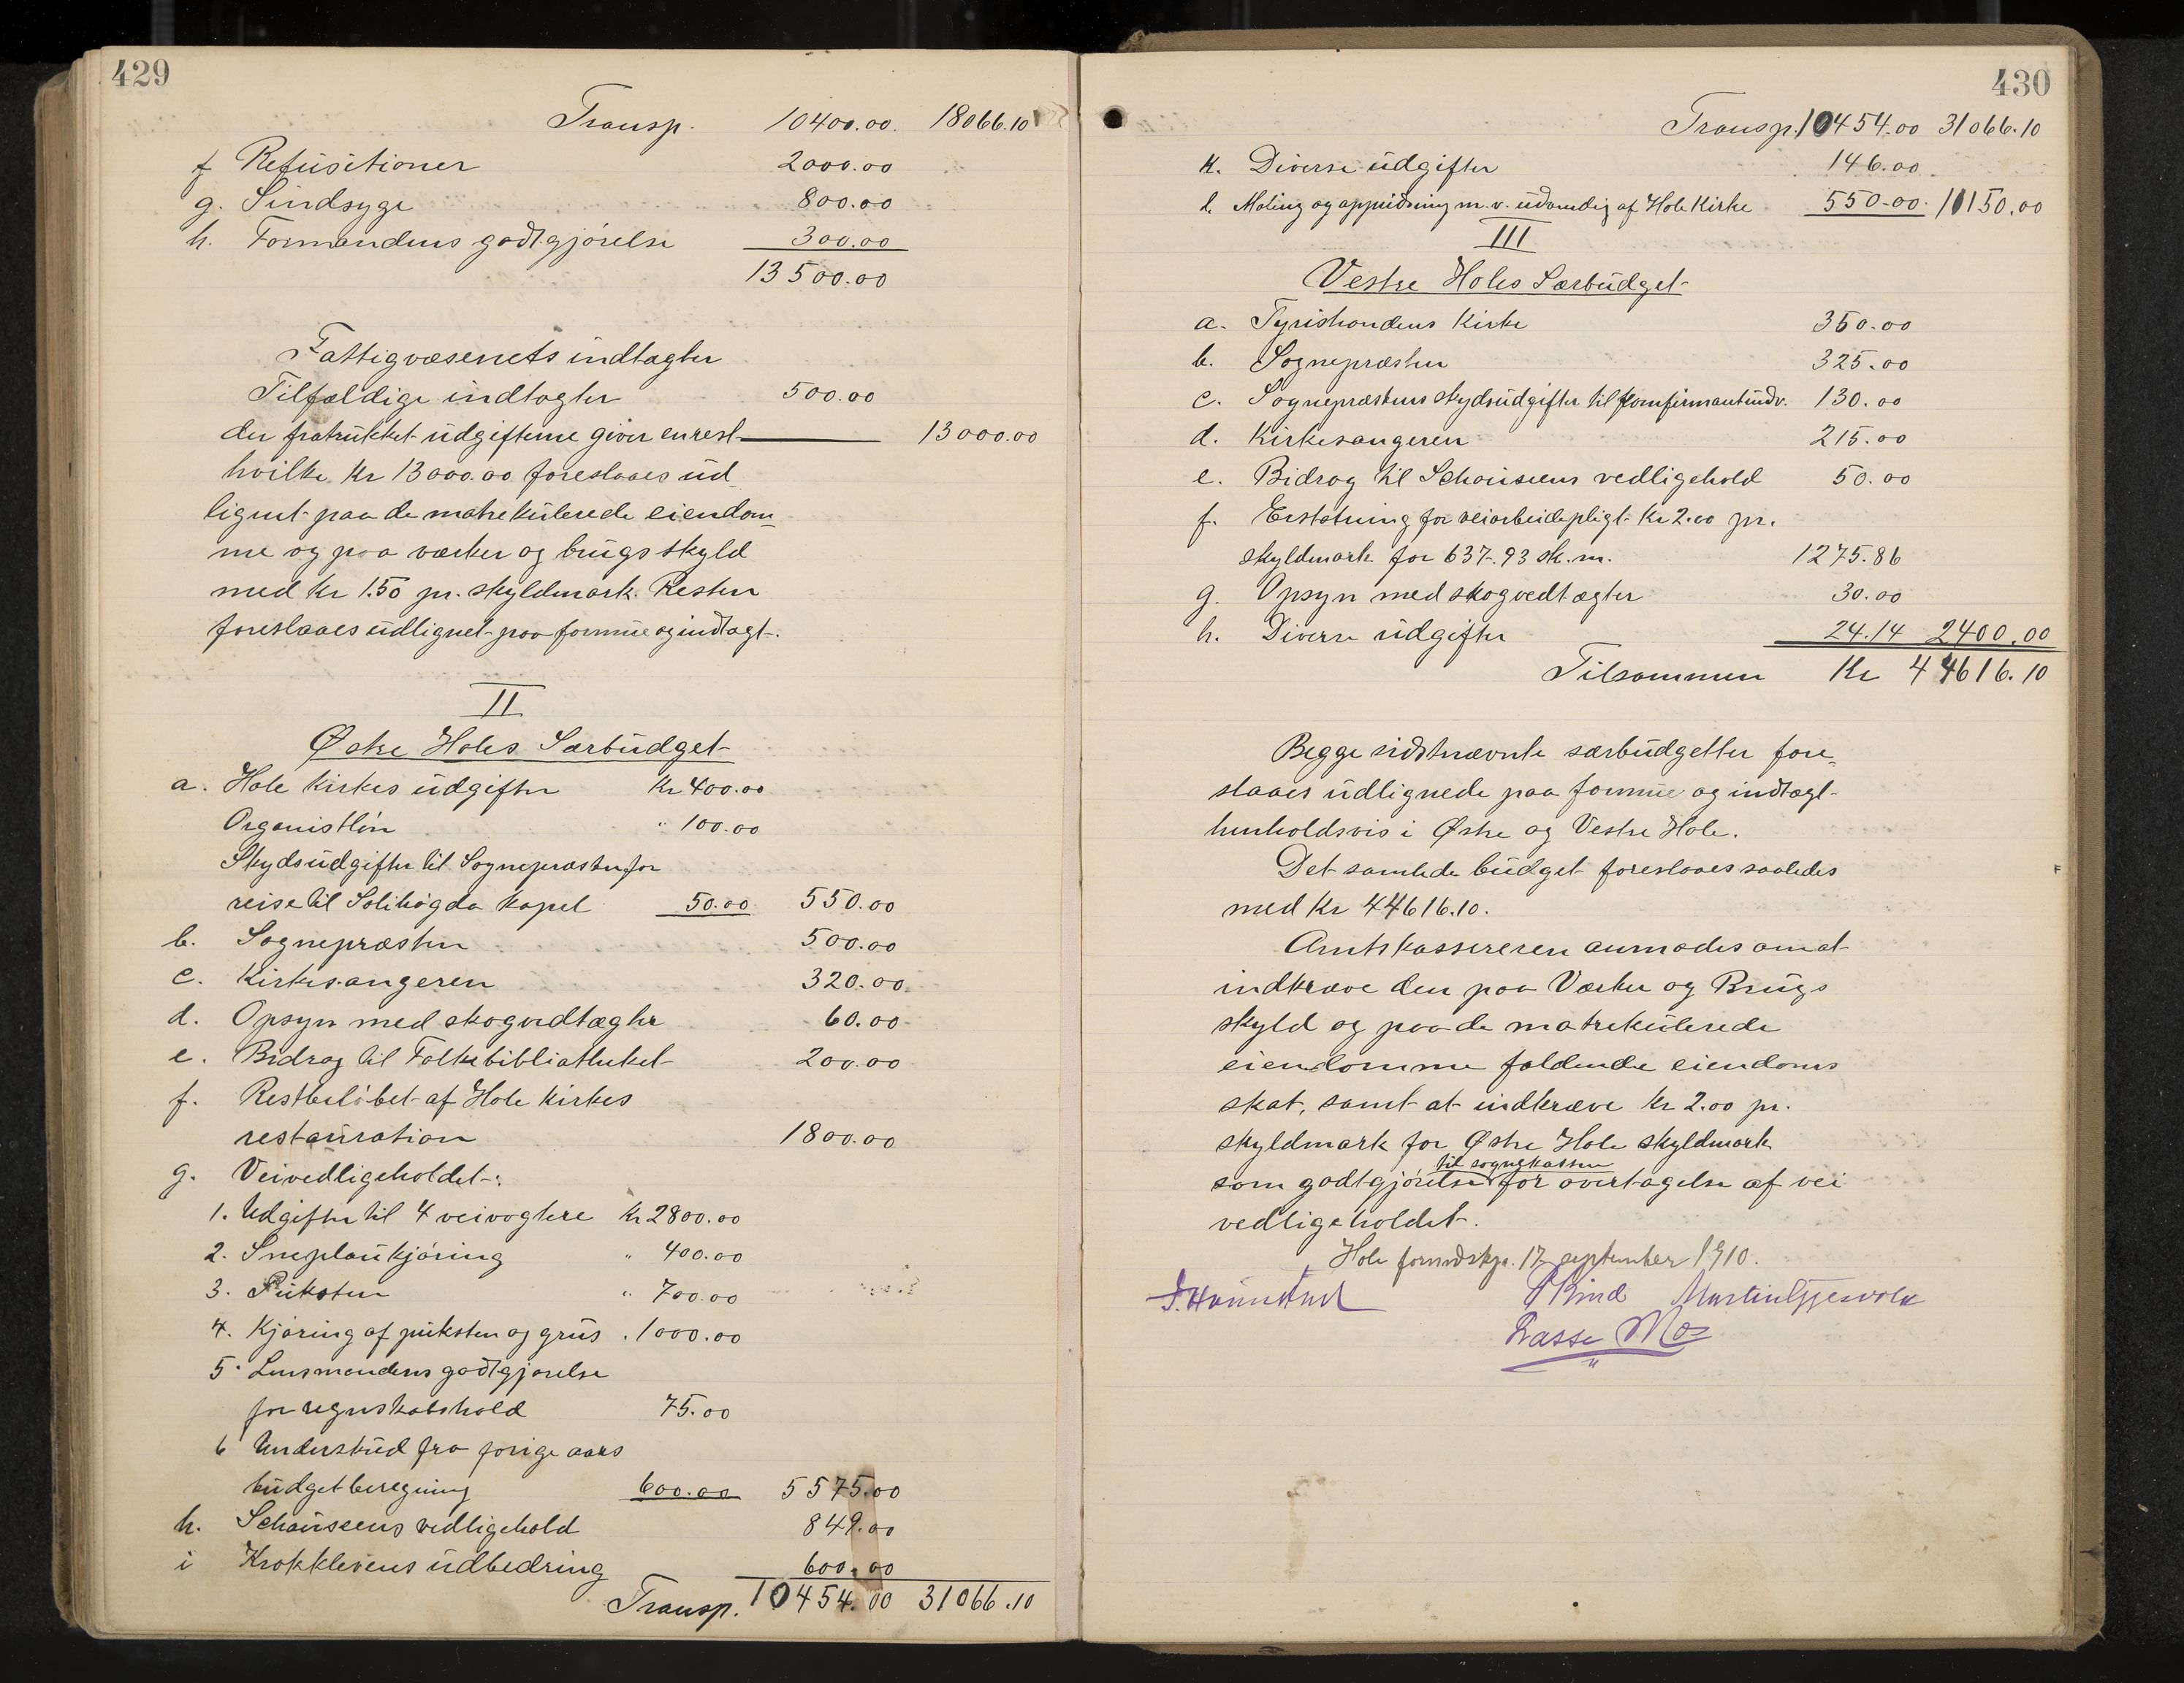 429
Transp. 10400.00. 18066.10
f Refusitioner 2000.00
g. Sindsyge 800.00
h. Formandens godtgjörelse 300.00
13500.00
Fattigvæsenets indtægter
Tilfældige indtægter 500.00
der fratrukket udgifterne giver en rest 13000.00
hvilke Kr 13000.00 foreslaaes ud-
lignet paa de matrekulerede eiendom-
me og paa værker og brugsskyld
med Kr 1.50 pr. skyldmark. Resten
foreslaaes udlignet paa formue og indtægt.
II
Østre Holes Særbudget
a. Hole kirkes udgifter Kr 400.00
Organistlön " 100.00
Skydsudgifter til Sognepræsten for
reise til Solihögda kapel 50.00 550.00
b. Sognepræsten 500.00
c. Kirkesangeren 320.00
d. Opsyn med skogvedtægter 60.00
e. Bidrag til Folkebibliotheket 200.00
f. Restbelöbet af Hole kirkes
restauration 1800.00
g. Veivedligeholdet:
1. Udgifter til 4 veivogtere Kr 2800.00
2. Sneplaukjöring " 400.00
3. Puksten " 700.00
4. Kjöring af puksten og grus . 1000.00
5. Lensmandens godtgjörelse
for regnskabshold 75.00
6 Underskud fra forige aars
budgetberegning 600.00 5575.00
h. Schausseens vedligehold 849.00
i Krokklevens udbedring 600.00
Transp. 10454.00 31066.10
430
Transp. 10454.00 31066.10
k. Diverse udgifter 146.00
l. Maling og oppudsning m.v. udvendig af Hole Kirke 550.00 11150.00
III
Vestre Holes Særbudget
a. Tyristrandens Kirke 350.00
b. Sognepræsten 325.00
c. Sognepræstens skydsudgifter til konfirmantundv. 130.00
d. Kirkesangeren 215.00
e. Bidrag til Schauseens vedligehold 50.00
f. Erstatning for veiarbeidepligt Kr 2.00 pr.
skyldmark for 637.93 sk.m. 1275.86
g. Opsyn med skogvedtægter 30.00
h. Diverse udgifter 24.14 2400.00
Tilsammen Kr 44616.10
Begge sidstnævnte særbudgetter fore-
slaaes udlignede paa formue og indtægt
henholdsvis i Østre og Vestre Hole.
Det samlede budget foreslaaes saaledes
med Kr 44616.10.
Amtskassereren anmodes om at
indkræve den paa Værker og Brugs
skyld og paa de matrekulerede
eiendomme faldende eiendoms
skat, samt at indkræve Kr 2.00 pr.
skyldmark for Østre Hole skyldmark
til sognekassen
som godtgjörelse for overtagelse af vei
vedligeholdet.
Hole formdskp. 17 september 1910.
Martin Gjesvold
Lasse Moe